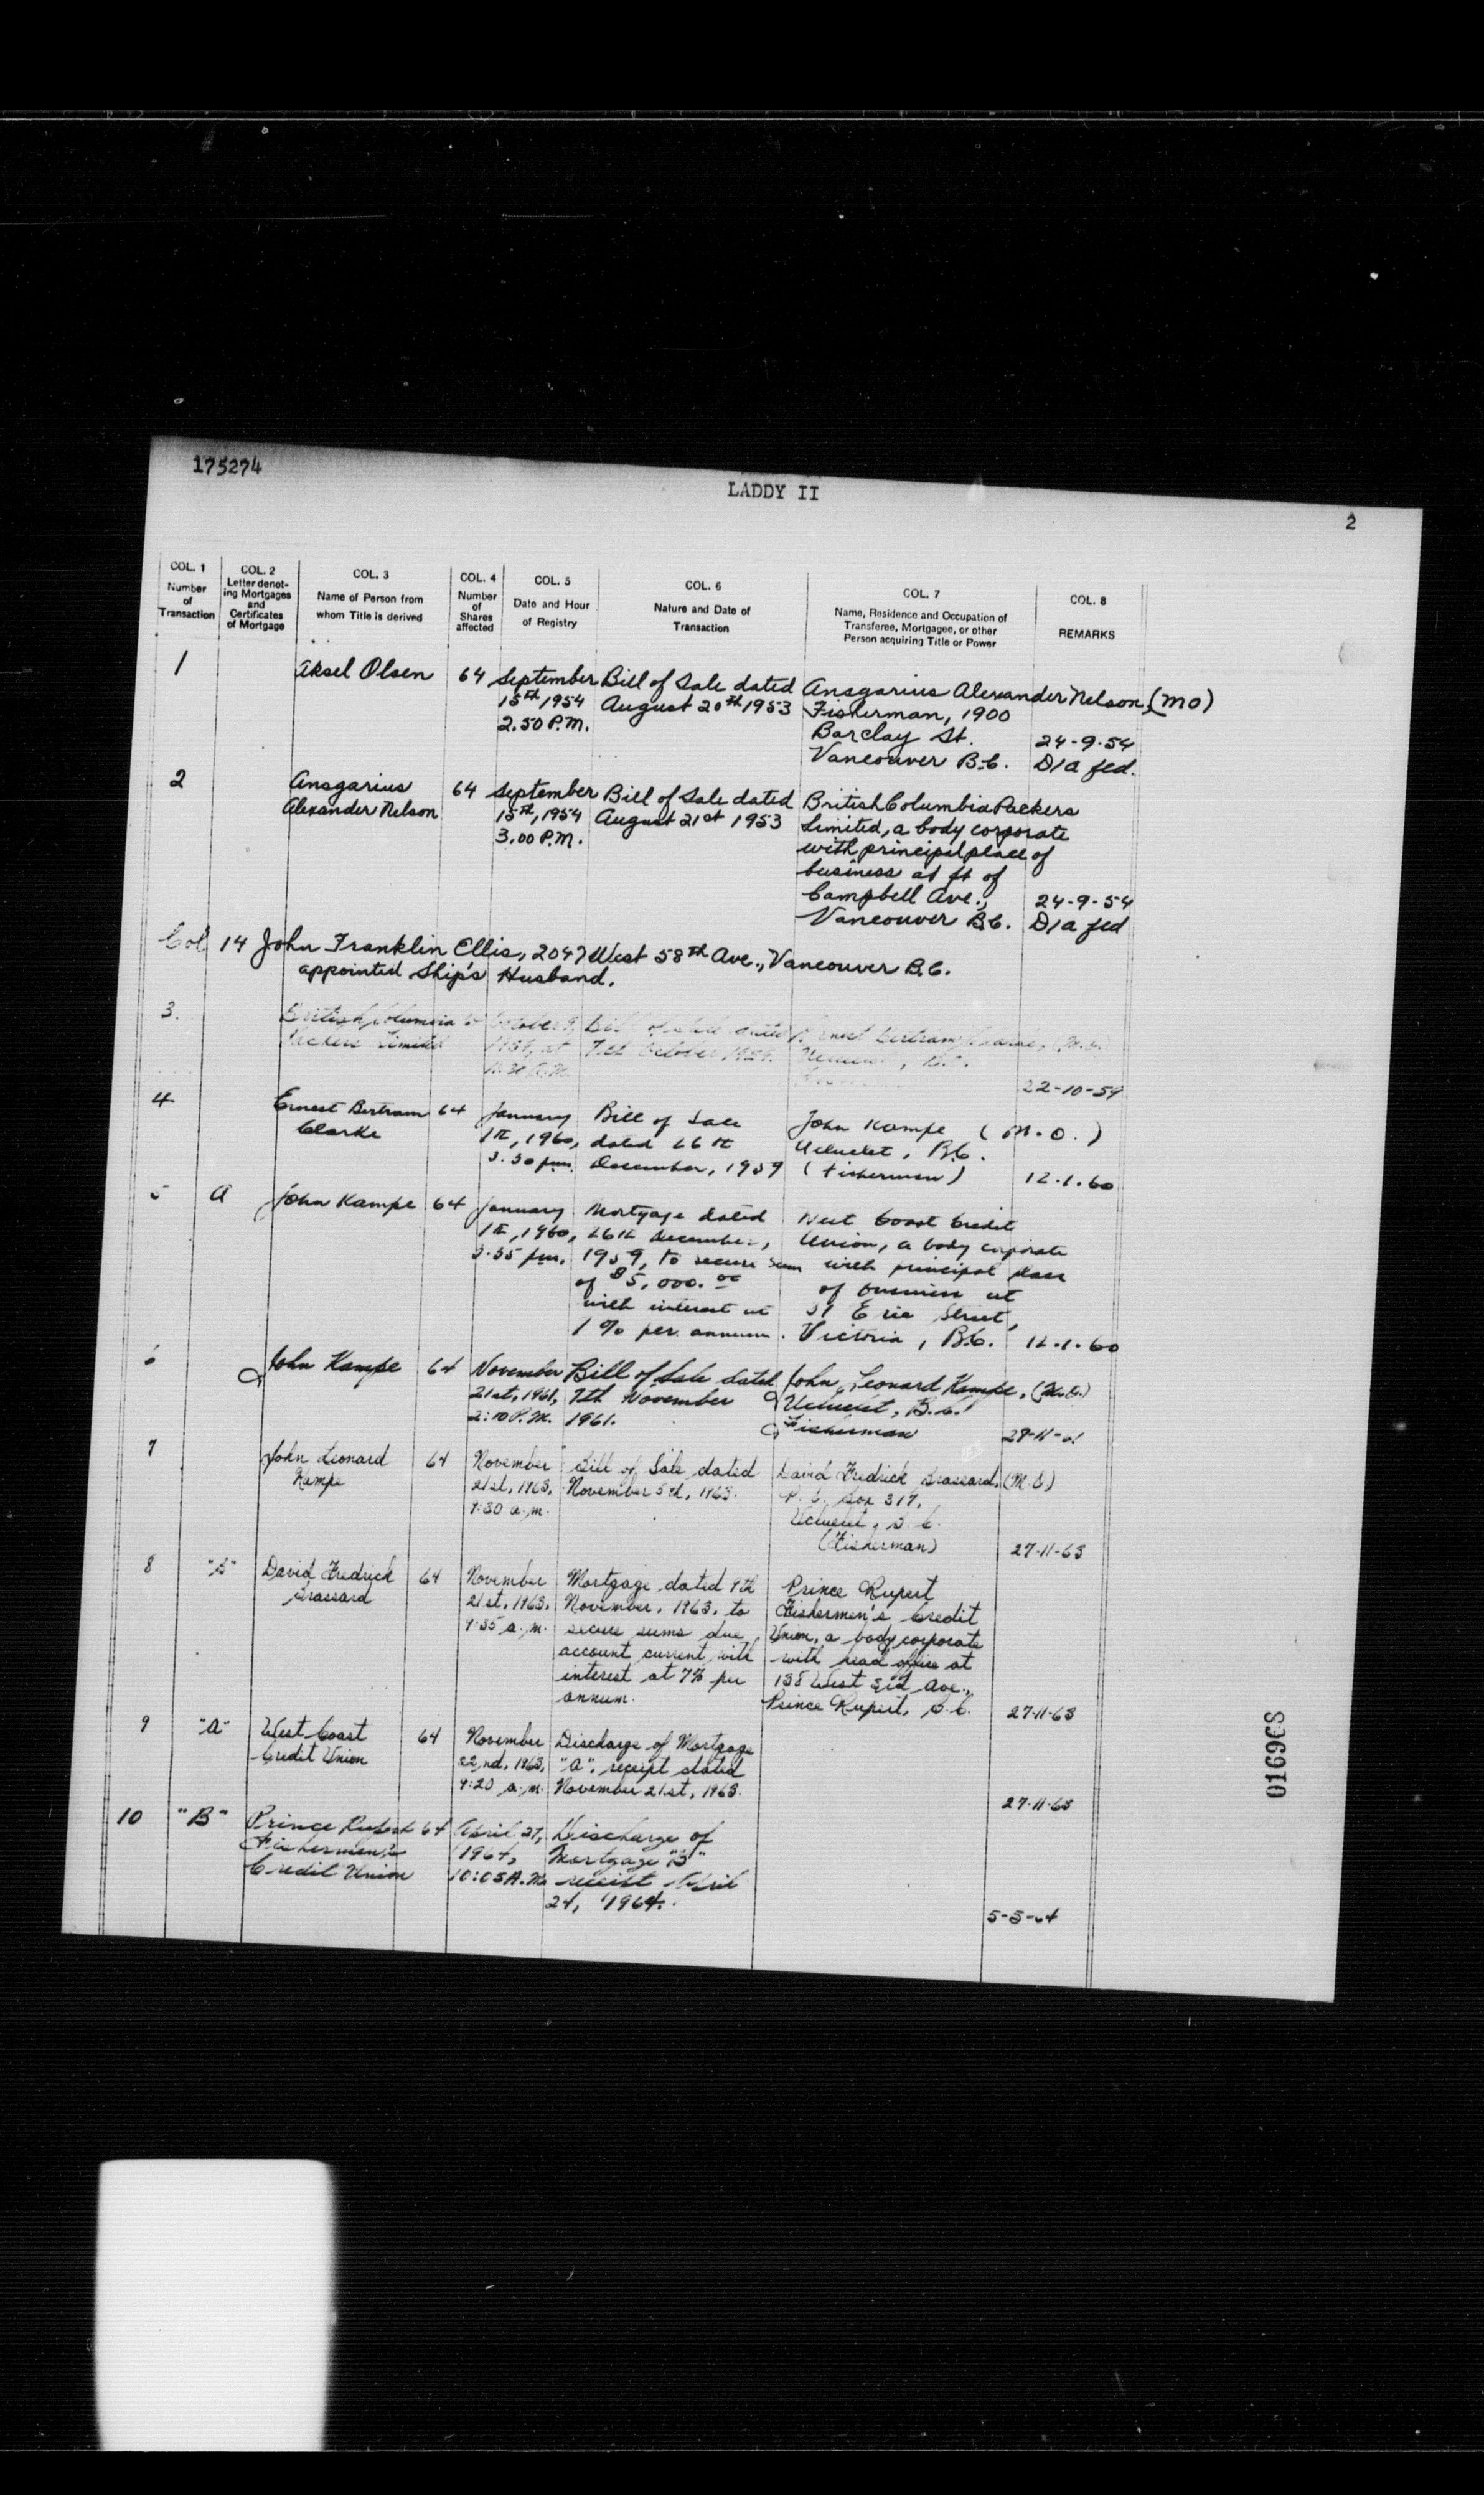 175274
LADDY II
2
COL. 1
Number
of
Transaction
COL. 2
Letter denot-
ing Mortgages
and
Certificates
of Mortgage
COL. 3
Name of Person from
whom Title is derived
COL. 4
Number
of
Shares
affected
COL. 5
Date and Hour
of Registry
COL. 6
Nature and Date of
Transaction
COL. 7
Name, Residence and Occupation of
Transferee, Mortgagee, or other
Person acquiring Title or Power
COL. 8
REMARKS
1
Aksel Olsen
64
September
15th, 1954
2.50 P.M.
Bill of Sale dated
August 20th 1953
Ansgarius Alexander Nelson, (MO)
Fisherman, 1900
Barclay St.
Vancouver B.C.
24-9-54
D/a fed.
2
Ansgarius
Alexander Nelson
64
September
15th, 1954
3.00 P.M.
Bill of Sale dated
August 21st 1953
British Columbia Packers
Limited, a body corporate
with principal place of
business at ft of
Campbell Ave.,
Vancouver B.C.
24-9-54
D/a fed
Col 14 John Franklin Ellis, 2047 West 58th Ave., Vancouver B.C.
appointed Ship's Husband.
3.
British Columbia
Packers Limited
October 9,
1959, at
11.30 A.M.
Bill of Sale dated
7th October 1959.
Ernest Bertram Clarke, (M.O.)
Ucluelet, B.C.
22-10-59
4
Ernest Bertram
Clarke
64
January
1960,
3.30 p.m.
Bill of Sale
dated 26th
December, 1959
John Kampe (M.O.)
Ucluelet, B.C.
(Fisherman)
12.1.60
5
A
John Kampe
64
January
1960,
3.35 p.m.
Mortgage dated
26th December,
1959, to secure sum
of $5,000.00
with interest at
1% per annum.
West Coast Credit
Union, a body corporate
with principal place
of business at
31 Erie Street,
Victoria, B.C.
12.1.60
6
John Kampe
64
November
21st, 1961,
2:10 P.M.
Bill of Sale dated
7th November
1961.
John Leonard Kampe, (M.O.)
Ucluelet, B.C.
Fisherman
28-11-61
7
John Leonard
Kampe
64
November
21st, 1963,
9:30 a.m.
Bill of Sale dated
November 5th, 1963.
David Fredrick Grassard, (M.O.)
P.O. Box 317,
Ucluelet, B.C.
(Fisherman)
27-11-63
8
"B"
David Fredrick
Grassard
64
November
21st, 1963,
9:35 a.m.
Mortgage dated 9th
November, 1963, to
secure sums due
account current with
interest at 7% per
annum.
Prince Rupert
Fishermen's Credit
Union, a body corporate
with head office at
138 West 3rd Ave.,
Prince Rupert, B.C.
27-11-63
9
"A"
West Coast
Credit Union
64
November
22nd, 1963,
9:20 a.m.
Discharge of Mortgage
"A", receipt dated
November 21st, 1963.
27-11-63
10
"B"
Prince Rupert
Fishermen's
Credit Union
64
April 27,
1964,
10:05 A.M.
Discharge of
Mortgage "B"
receipt April
24, 1964.
5-5-64
016968